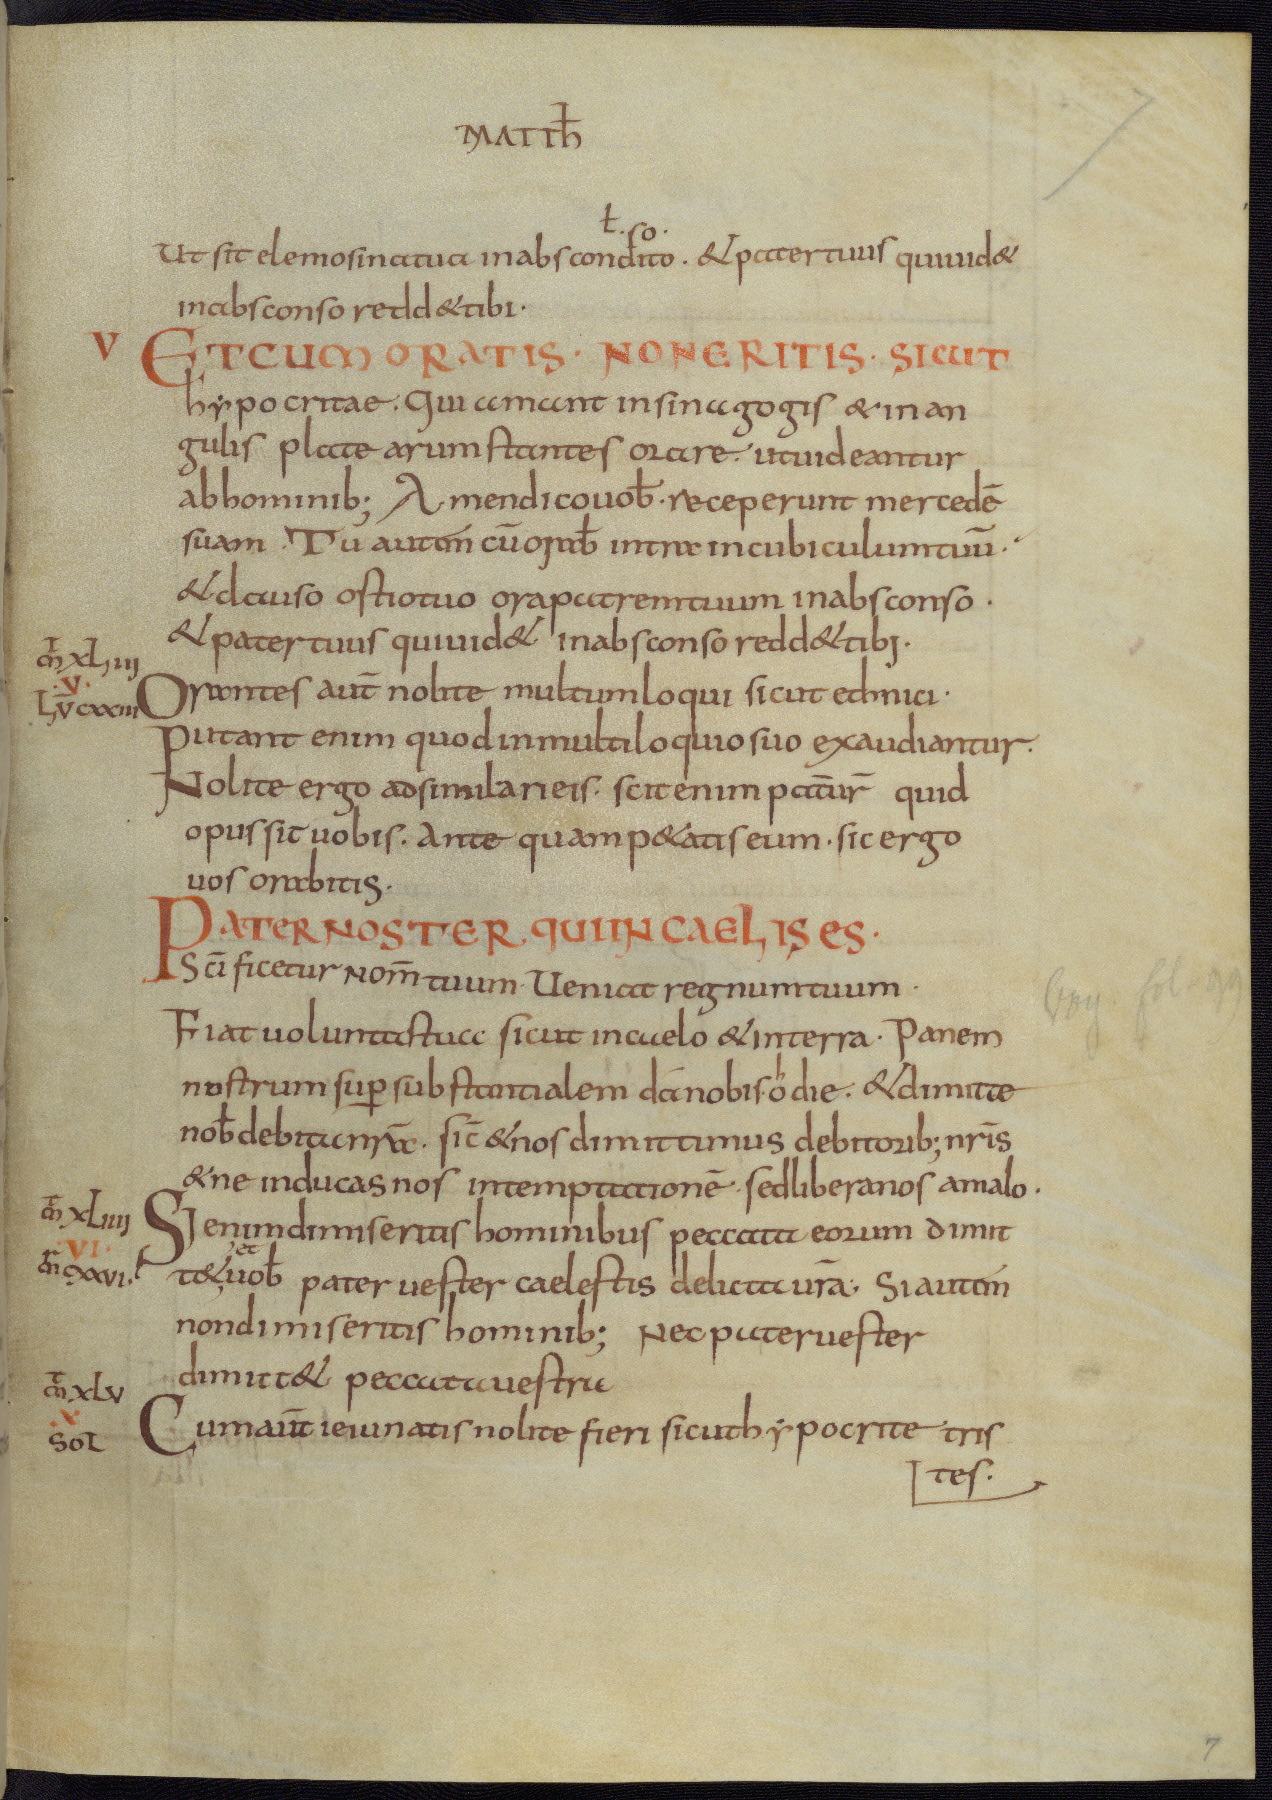 MATTH̄
ł. so.
Ut sit elemosina tua in abscondito. & pater tuus qui uid&
in absconso redd& tibi.
V ET CUM ORATIS. NON ERITIS. SICUT
hẏpocritae. Qui amant in sinagogis & in an
gulis platearum stantes orare. ut uideantur
ab hominib; Amen dico uob̄. receperunt mercedē
suam. Tu autem̄ cū orab̄ intra in cubiculum tuū.
& clauso ostio tuo ora patrem tuum in absconso.
& pater tuus qui uid& in absconso redd& tibi.
m̄ XLIII
.V.
LV̄ CXXIII
Orantes aut̄ nolite multum loqui sicut ethnici.
Putant enim quod in multiloquio suo exaudiantur.
Nolite ergo adsimilari eis. scit enim pat̄ ur̄ quid
opus sit uobis. Ante quam p&atis eum. sic ergo
uos orabitis.
PATER NOSTER QUI IN CAELIS ES.
Sc̄ificetur nom̄ tuum. Ueniat regnum tuum.
Fiat uoluntas tua sicut in caelo & in terra. Panem
nostrum sup̲substantialem da nobis hodie. & dimitte
nob̄ debita nr̄a. sic̄ & nos dimittimus debitorib; nr̄is
& ne inducas nos in temptationē. sed libera nos a malo.
m̄ XLIIII
.VI.
m̄r XXVI
Si enim dimiseritis hominibus peccata eorum dimit
et
t& uob̄ pater uester caelestis delicta ur̄a. Si autem̄
non dimiseritis hominib; Nec pater uester
dimitt& peccata uestra
m̄ XLV
.X.
SOL
Cum aut̄ ieiunatis nolite fieri sicut hẏpocrite tris
tes.
7